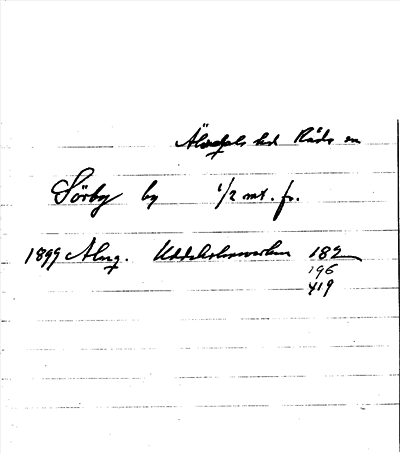 Älvdals hd Råda sn
Sörby by 1/2 mt. fr.
1899 Almq. Uddeholmsverken 182
196
419